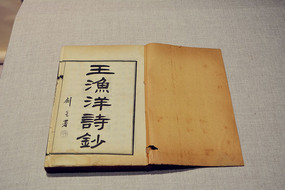 王漁洋詩鈔